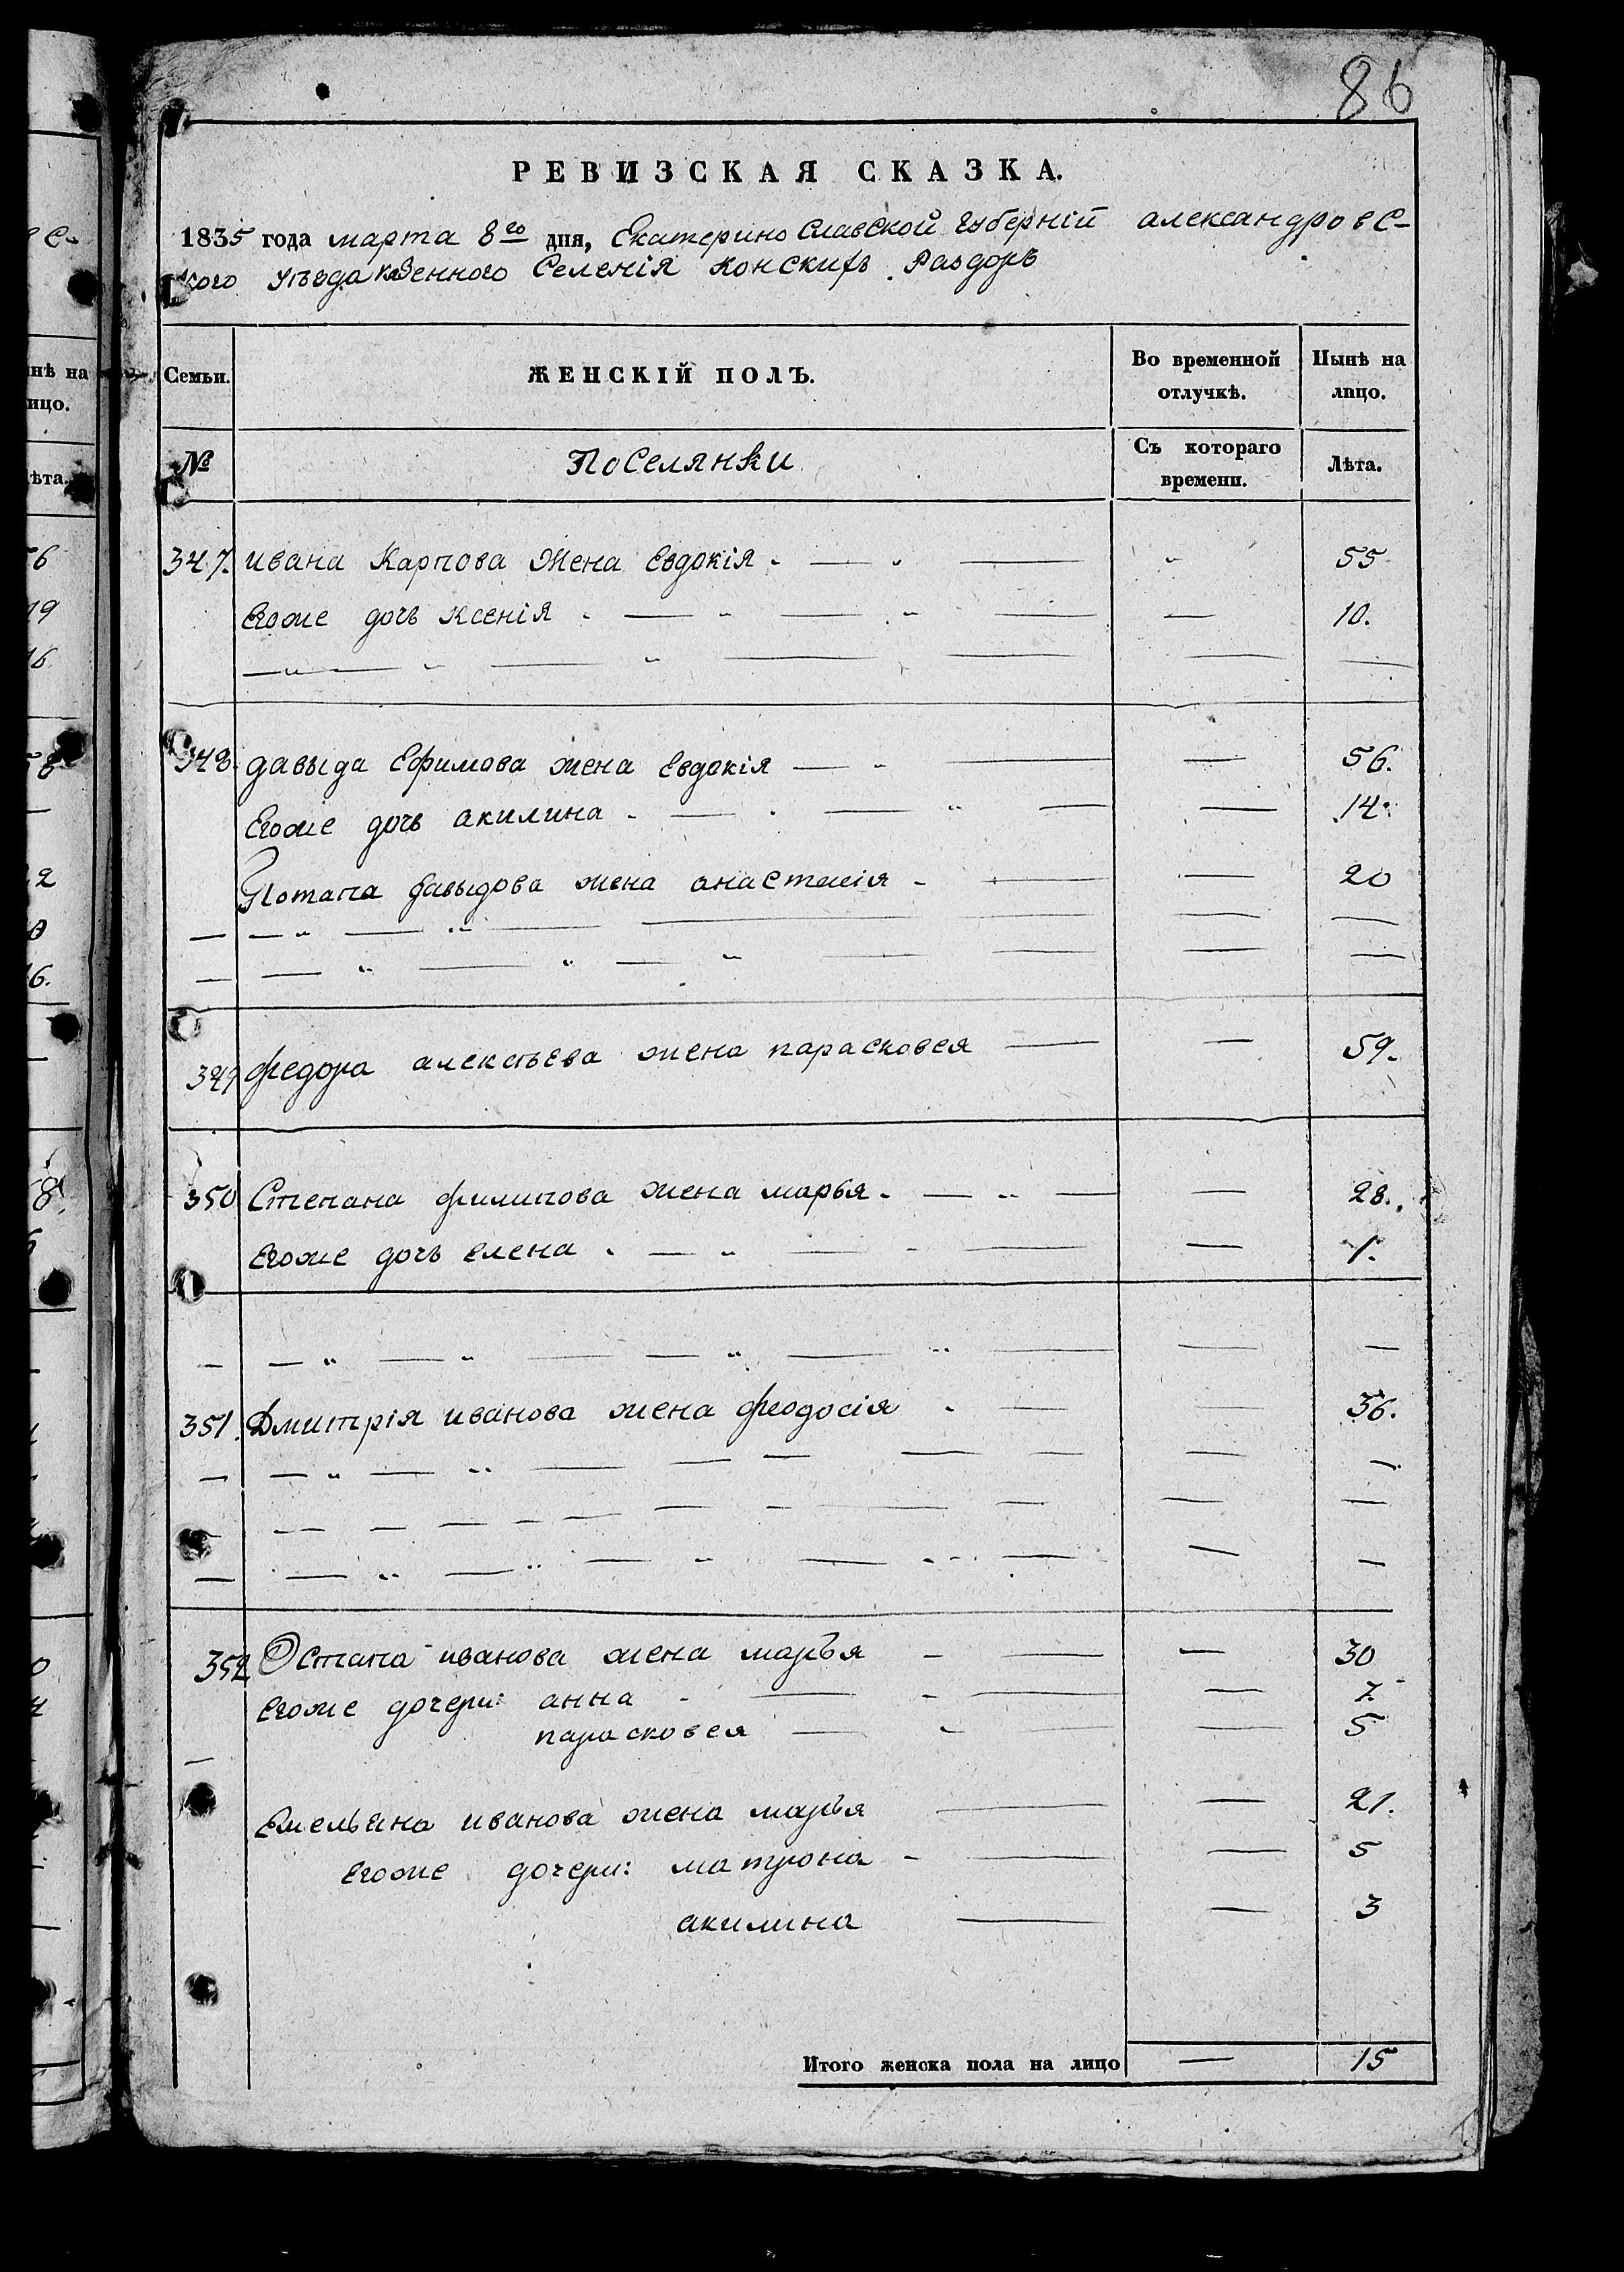 86
РЕВИЗСКАЯ СКАЗКА.
1835 года марта 8го дня, Екатеринославской губерніи александровс-
кого уѣзда казенного Селенія Конскихъ Раздоръ
Семьи. ЖЕНСКІЙ ПОЛЪ. Во временной отлучкѣ. Нынѣ на лицо.
№ Поселянки Съ котораго времени. Лѣта.
347. ивана Карпова Жена Евдокія 55
Егоже дочь Ксенія 10.
348. давыда Ефимова жена Евдокія 56.
Егоже дочь акилина 14.
Потапа давыдова жена анастасія 20
349 федора алексѣева жена парасковея 59.
350 Степана филипова жена марья 28.
Егоже дочь елена 1.
351. Дмитрія иванова жена феодосія 36.
352 Остапа иванова жена марья 30
Егоже дочери: анна 7.
парасковея 5
Емельяна иванова жена марья 21.
Егоже дочери: матрона 5
акилина 3
Итого женска пола на лицо — 15